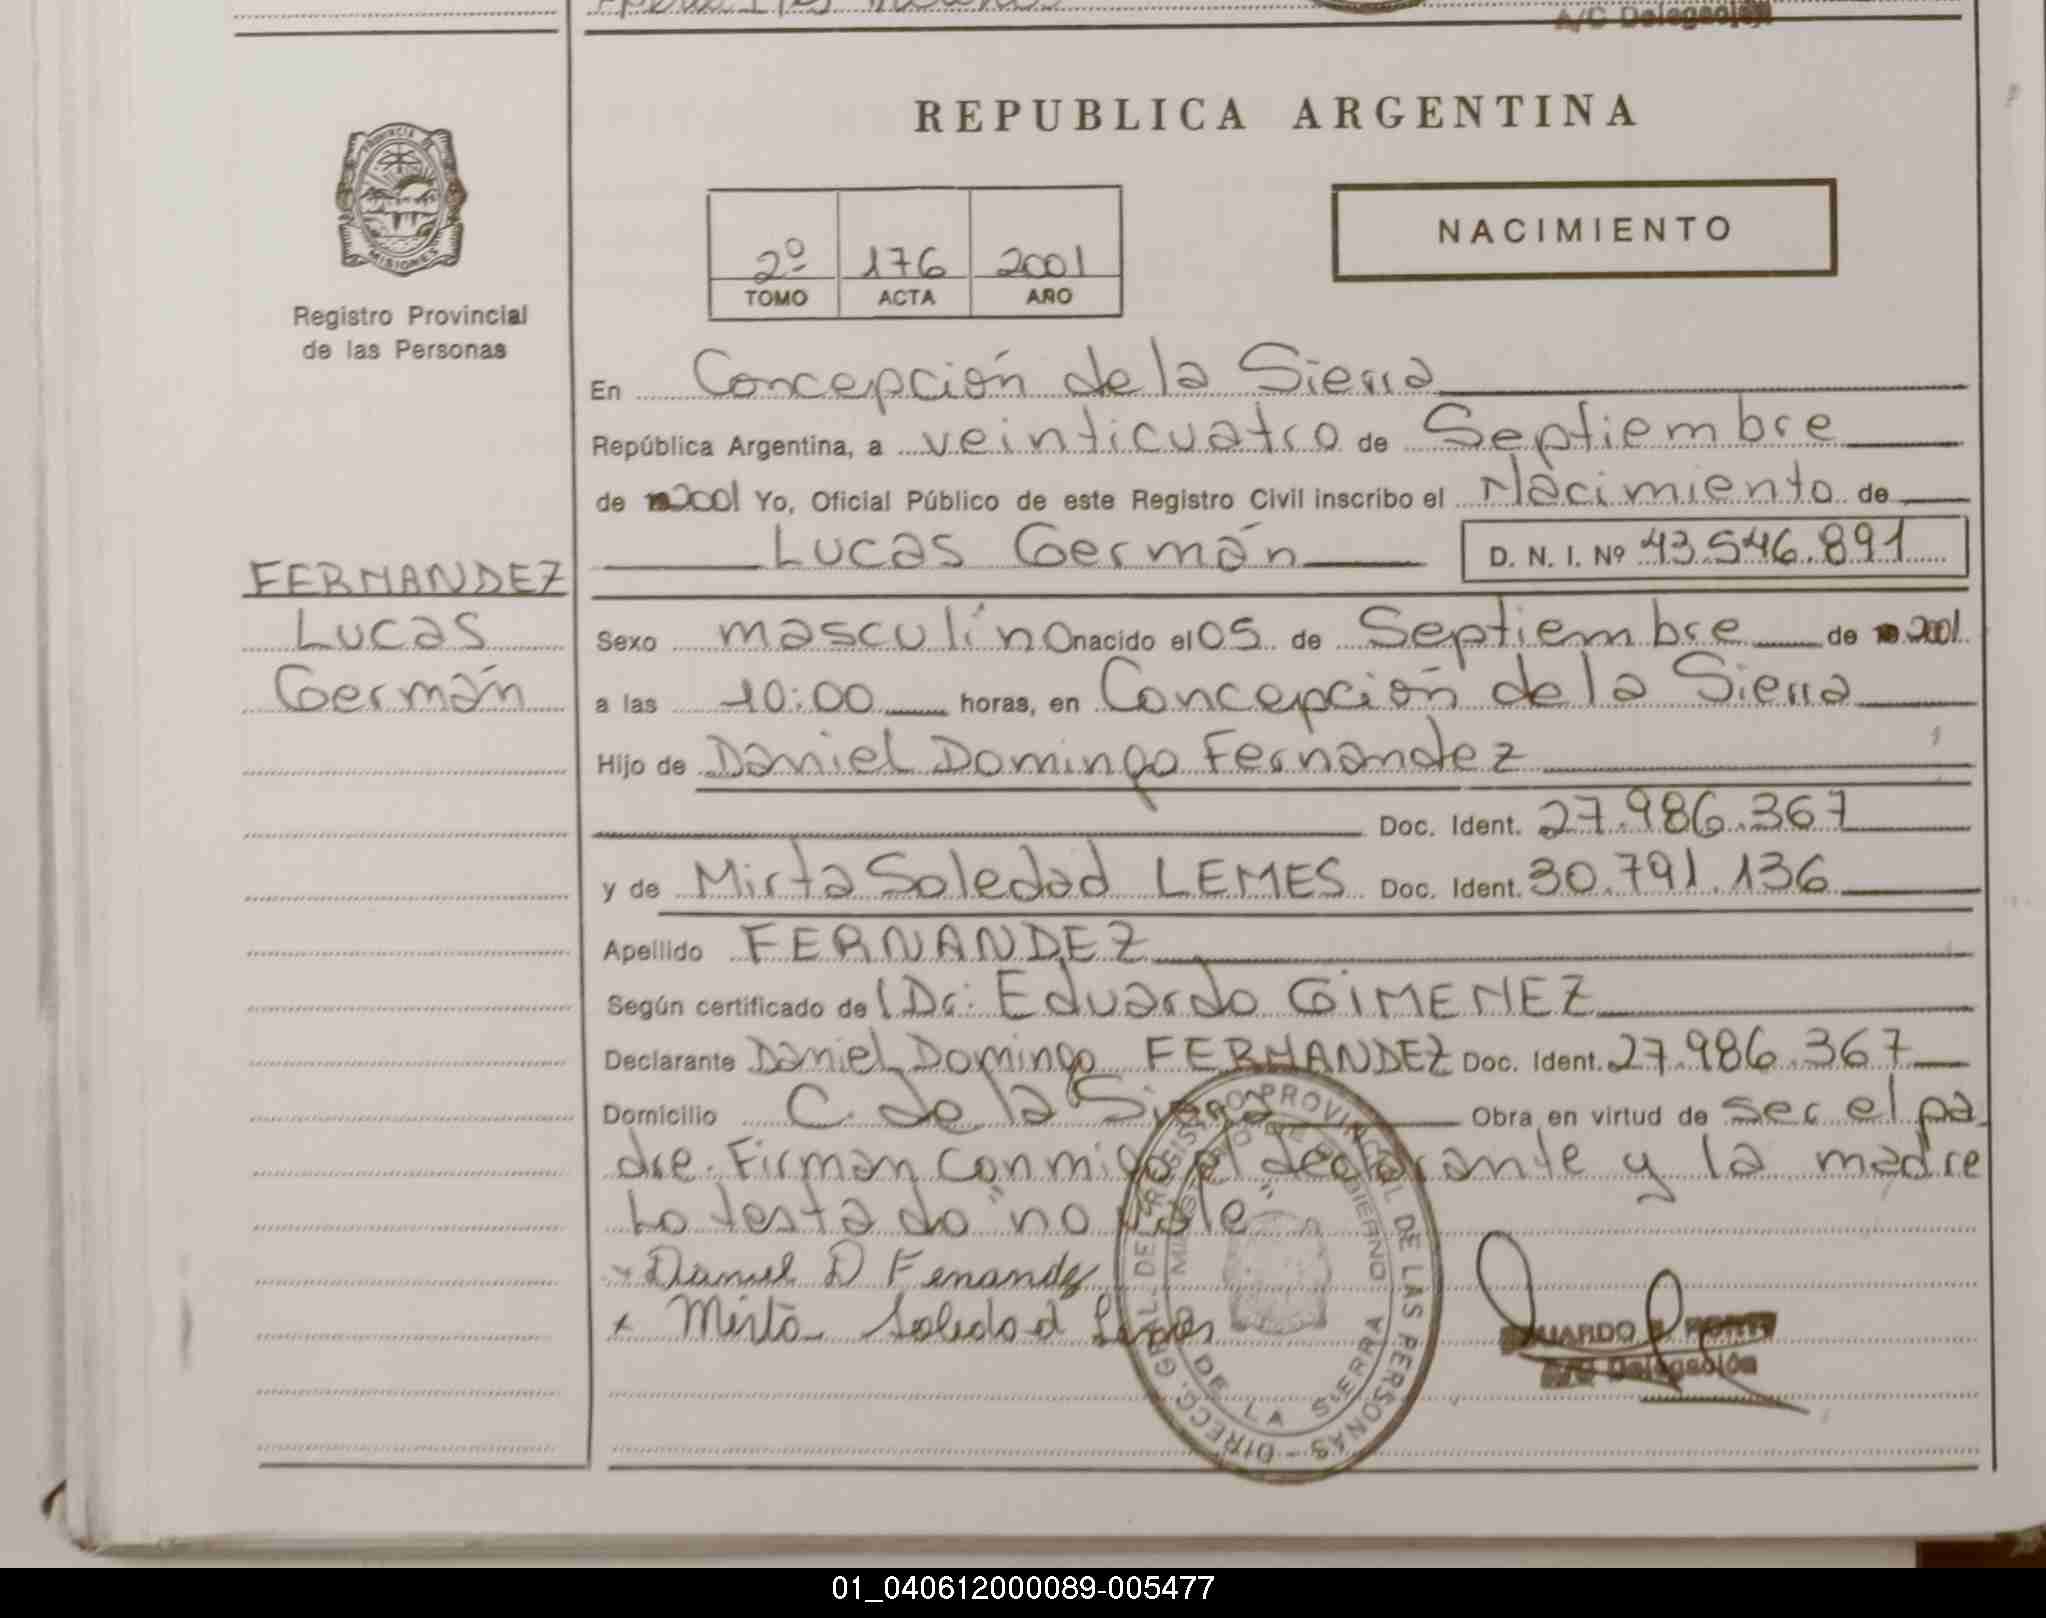 A/C Delegación
REPUBLICA ARGENTINA
PROVINCIA DE
MISIONES
Registro Provincial
de las Personas
2º 176 2001
TOMO ACTA AÑO
NACIMIENTO
En Concepción de la Sierra
República Argentina, a veinticuatro de Septiembre
de 2001 Yo, Oficial Público de este Registro Civil inscribo el Nacimiento de
Lucas Germán D. N. I. Nº 43.546.891
FERNANDEZ
Lucas
Germán
Sexo masculino nacido el 05 de Septiembre de 2001
a las 10:00 horas, en Concepción de la Sierra
Hijo de Daniel Domingo Fernandez
Doc. Ident. 27.986.367
y de Mirta Soledad LEMES Doc. Ident. 30.791.136
Apellido FERNANDEZ
Según certificado del Dr. Eduardo GIMENEZ
Declarante Daniel Domingo FERNANDEZ Doc. Ident. 27.986.367
Domicilio C. de la Sierra Obra en virtud de ser el pa
dre. Firman conmigo el declarante y la madre
Lo testado "no vale"
x Daniel D Fernandez
x Mirta Soledad Lemes
DIRECC. GRAL. DEL REGISTRO PROVINCIAL DE LAS PERSONAS
MINISTERIO DE GOBIERNO
DE LA SIERRA
EDUARDO
A/C Delegación
01_040612000089-005477